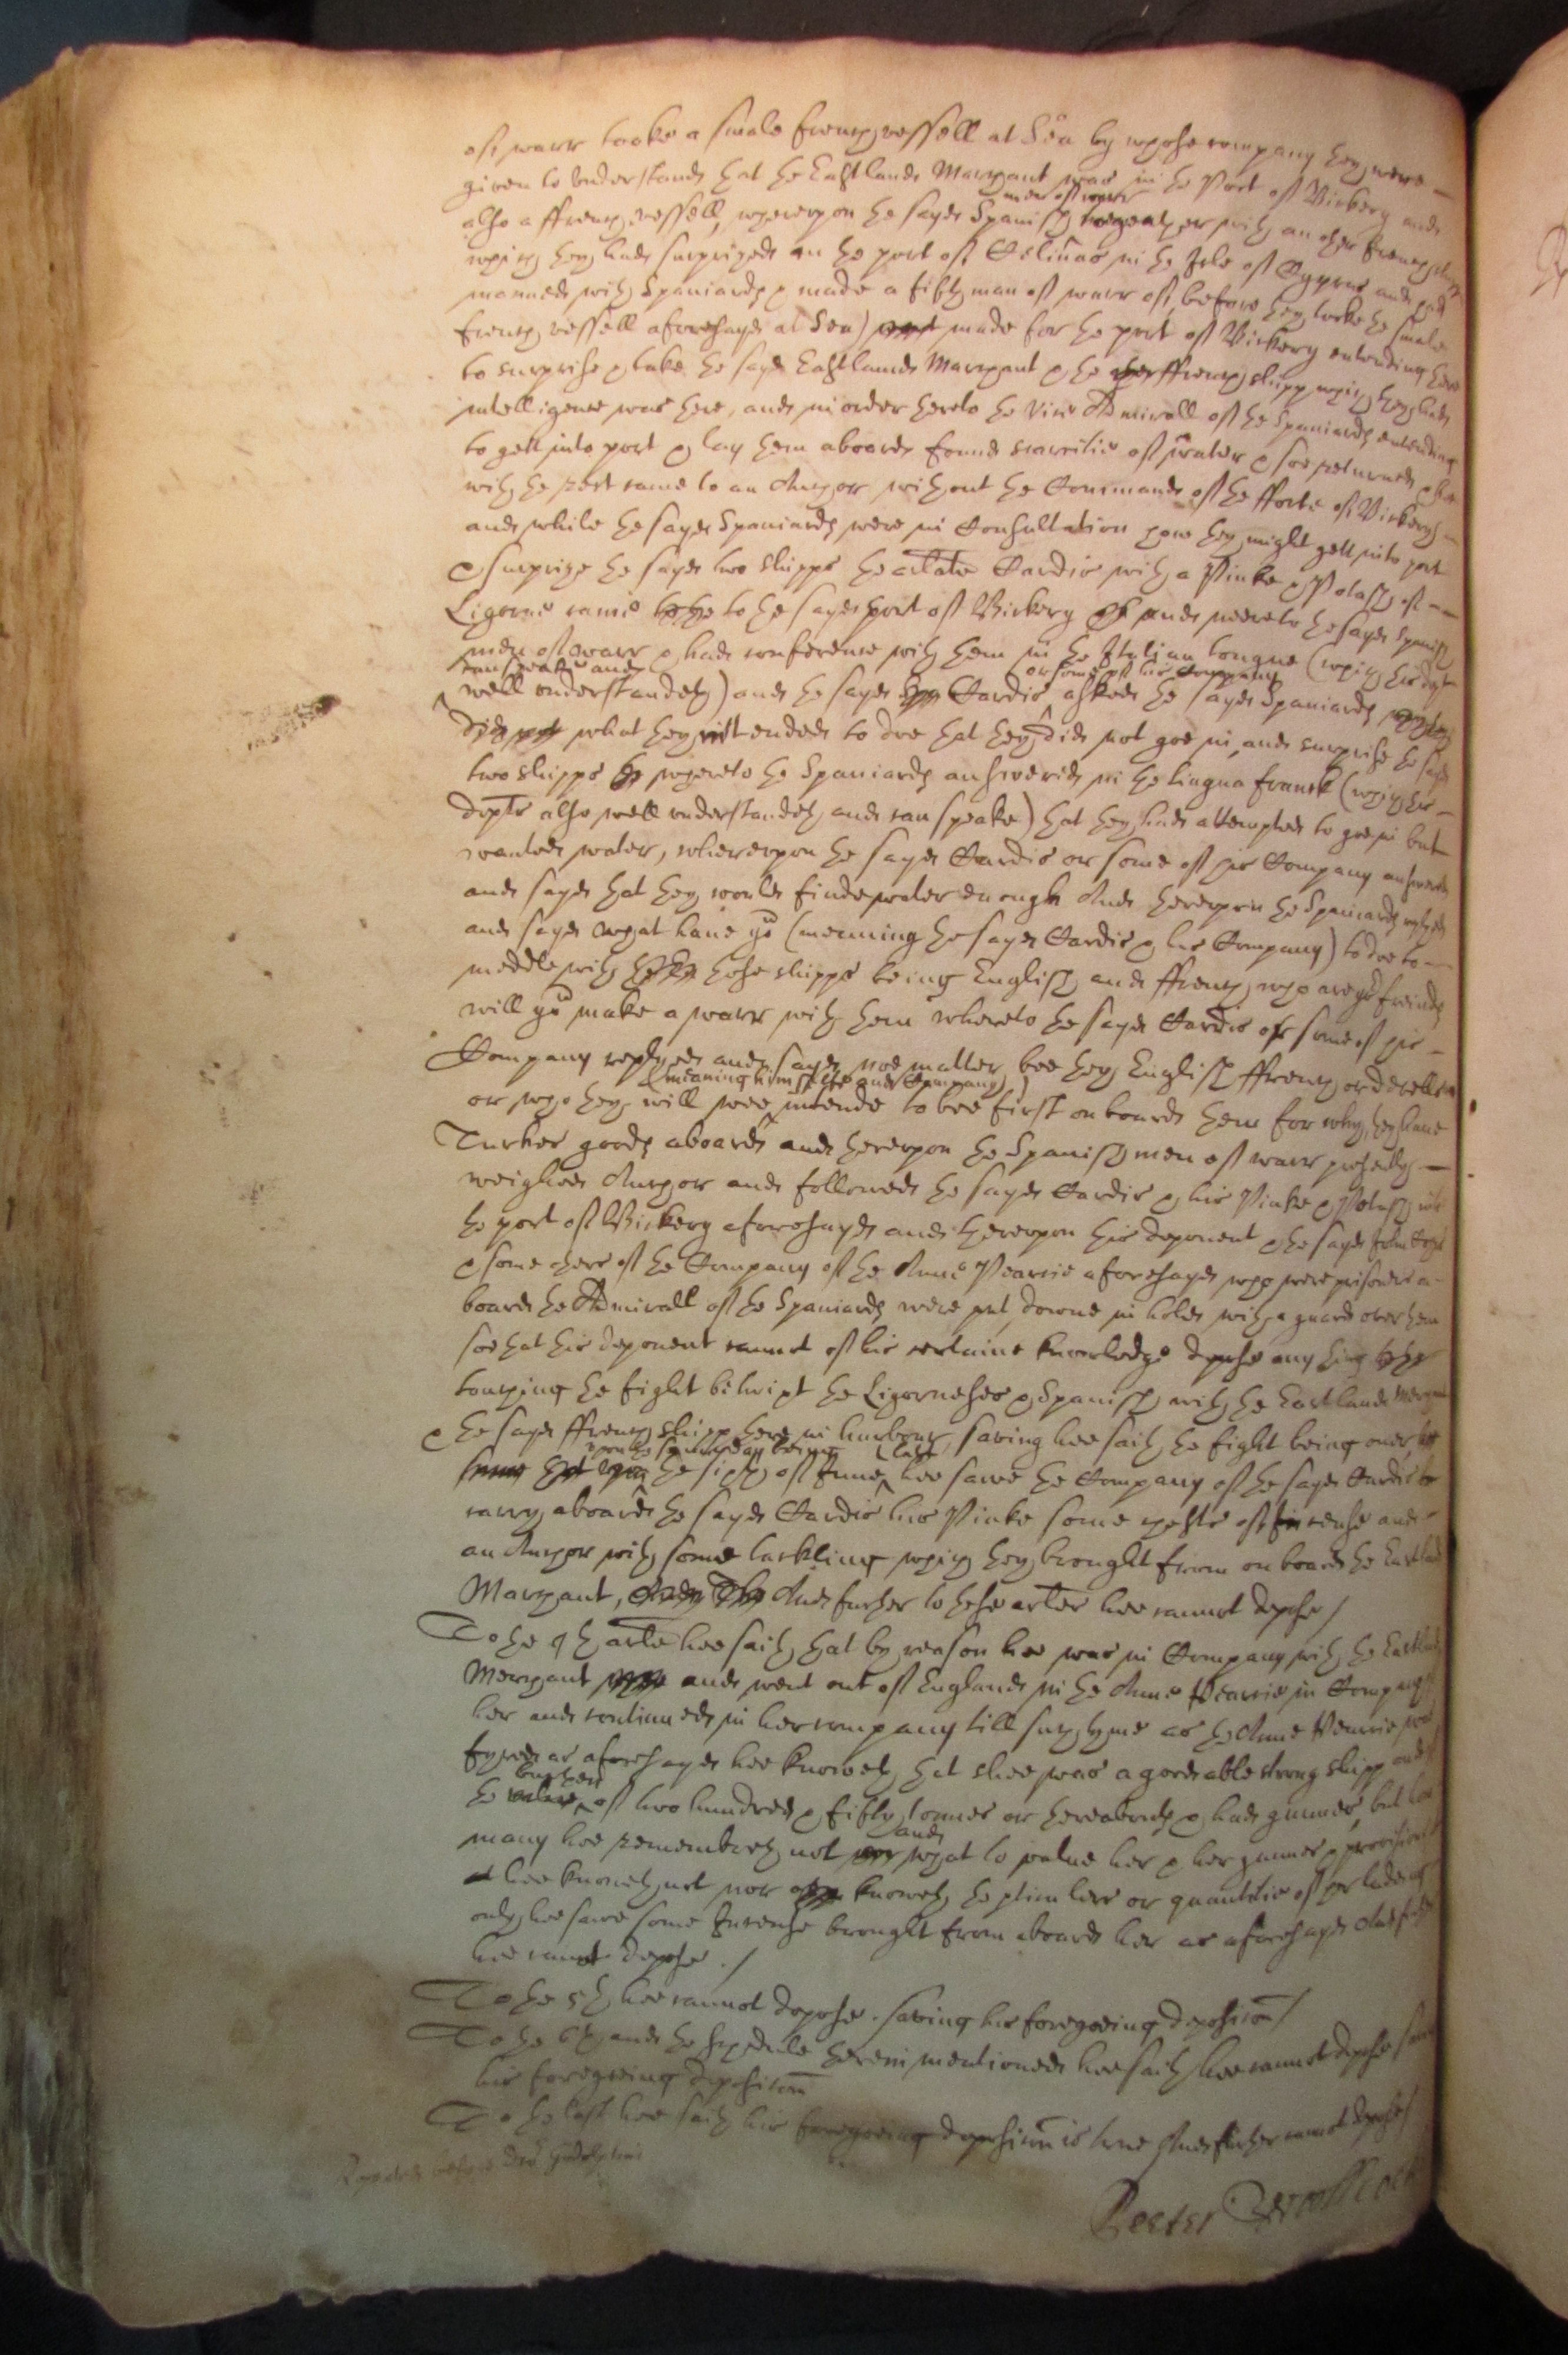 of warr tooke a smale french vessell at Sea by whose company they were
given to understand that the Eastland Marchant was in the Port of Bickery and
also a ffrench vessell, whereupon the sayd Spanish men of warr together with an other french shipp
which they had surprized in the port of Salinas in the Isle of Cyprus and had
manned with Spaniards & made a fifth man of warr of, before they tooke the smale
french vessell aforesayd at Sea) made for the port of Bickery entending there
to surprise & take the sayd Eastland Marchant & the ffrench shipp which they had
intelligence was there, and in order thereto the Vice Admirall of the Spaniards entending
to gett into port & lay them aboord found scarcitie of water & soe returned &
with the rest came to an Anchor without the Command of the fforte of Bickery
and while the sayd Spaniards were in Consultation how they might gett into port
& surprize the sayd two shipps the arlate Cardis with a Pinke & Polach of
Ligorne came to the sayd port of Bickery and neere to the sayd Spanish
men of warr & had conference with them in the Italian tongue (which this dept
can speake and
well understandeth) and the sayd Cardis or some of his Company asked the sayd Spaniards
what they intended to doe that they did not goe in and surprise the sayd
two shipps whereto the Spaniards answered in the lingua franck (which this
depte also well understandeth and can speake) that they had attempted to goe in but
wanted water, whereupon the sayd Cardis or some of his Company answered
and sayd that they would finde water enough And thereupon the Spaniards replyed
and sayd what have you (meaning the sayd Cardis & his Company) to doe to
meddle with those shipps being English and ffrench who are your freinds
will you make a warr with them whereto the sayd Cardis or some of his
Company replyed and sayd noe matter bee they English ffrench or devells
or who they will wee (meaning himselfe and Company) intende to bee first on board them for why, they have
Turkes goods aboard and thereupon the Spanish men of warr presently
weighed Anchor and followed the sayd Cardis & his Pinke & Polach into
the port of Bickery aforesayd and thereupon this deponent & the sayd John
& some others of the Company of the Anne Pearcie aforesayd who were prisoners a
board the Admirall of the Spaniards were put downe in hold with a guard over them
soe that this deponent cannot of his certaine knowledge depose any thing
touching the fight betwixt the Ligorneses & Spanish with the Eastland Merchant
& the sayd ffrench shipp there in harbour, saving hee saith the fight being over hee
upon the same day being the sixth of June last hee sawe the Company of the sayd Cardis to
carry aboard the sayd Cardis his Pinke some chests of incense and
an Anchor with some tackling which they brought from on board the Eastland
Marchant, And further to these arles hee cannot depose /
To the 4th arle hee saith that by reason hee was in Company with the Eastland
Merchant and went out of England in the Anne Pearcie in Company
her and continued in her company till such tyme as the Anne Pearcie was
fyred as aforesayd hee knoweth that shee was a good able strong shipp and
the burthen of two hundred & fifty tonnes or thereabouts & had gunnes, but how
many hee remembreth not and what to value her & her gunnes & provisions
at hee knoweth not nor knoweth the pticulers or quantitie of her ladeing
only hee sawe some Incense brought from aboard her as aforesayd And further
hee cannot depose ./
To the 5th hee cannot depose saving his foregoeing deposicon /
To the 6th and the schedule therein mentioned hee saith hee cannot depose saving
his foregoeing deposicon
To the last hee saith his foregoeing deposicon is true And further cannot depose /
Repeated before
Peeter